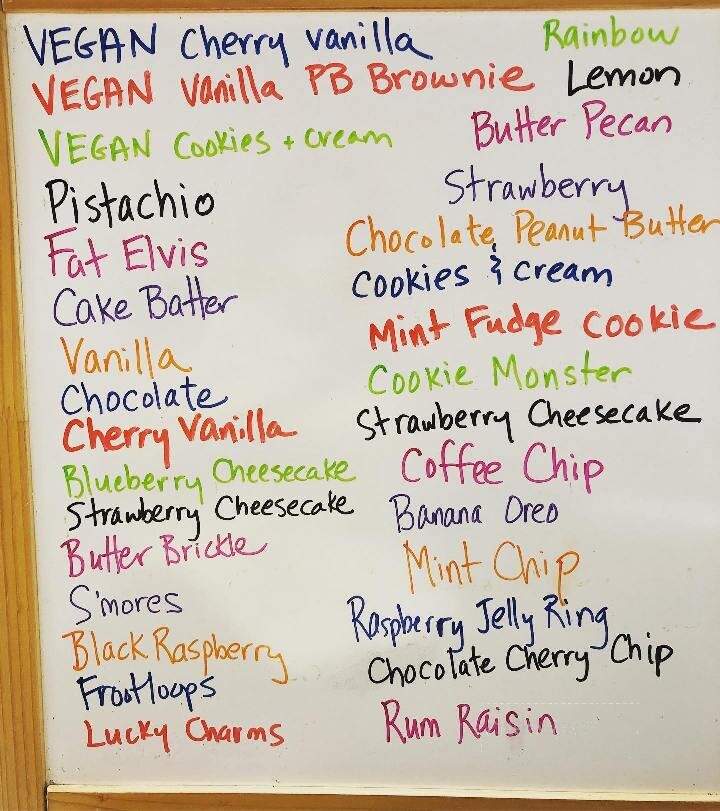 VEGAN Cherry vanilla
VEGAN Vanilla PB Brownie
VEGAN Cookies + cream
Pistachio
Fat Elvis
Cake Batter
Vanilla
Chocolate
Cherry Vanilla
Blueberry Cheesecake
Strawberry Cheesecake
Butter Brickle
S'mores
Black Raspberry
Frootloops
Lucky Charms
Rainbow
Lemon
Butter Pecan
Strawberry
Chocolate Peanut Butter
Cookies & cream
Mint Fudge Cookie
Cookie Monster
Strawberry Cheesecake
Coffee Chip
Banana Oreo
Mint Chip
Raspberry Jelly Ring
Chocolate Cherry Chip
Rum Raisin